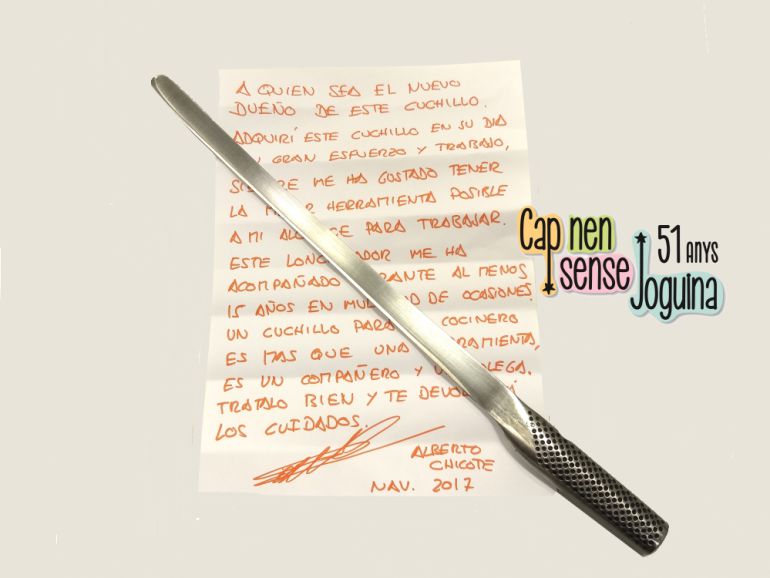 A QUIEN SEA EL NUEVO
DUEÑO DE ESTE CUCHILLO.
ADQUIRÍ ESTE CUCHILLO EN SU DIA
GRAN ESFUERZO Y TRABAJO,
ME HA GUSTADO TENER
LA HERRAMIENTA POSIBLE
A MI PARA TRABAJAR.
ESTE ME HA
ACOMPAÑADO AL MENOS
15 AÑOS EN DE OCASIONES.
UN CUCHILLO PARA COCINERO
ES MAS QUE UNA
ES UN COMPAÑERO Y
TRATALO BIEN Y TE
LOS CUIDADOS.
ALBERTO
CHICOTE
NAV. 2017
Cap nen
sense
Joguina
51 ANYS